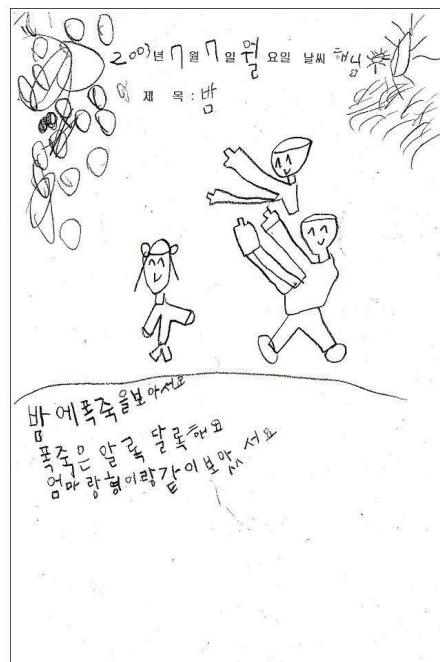 2003년 7월 7일 월요일 날씨 햇님
제 목 : 밤
밤에폭죽을보아서요
폭죽은 알록 달록해요
엄마랑형이랑같이보았서요